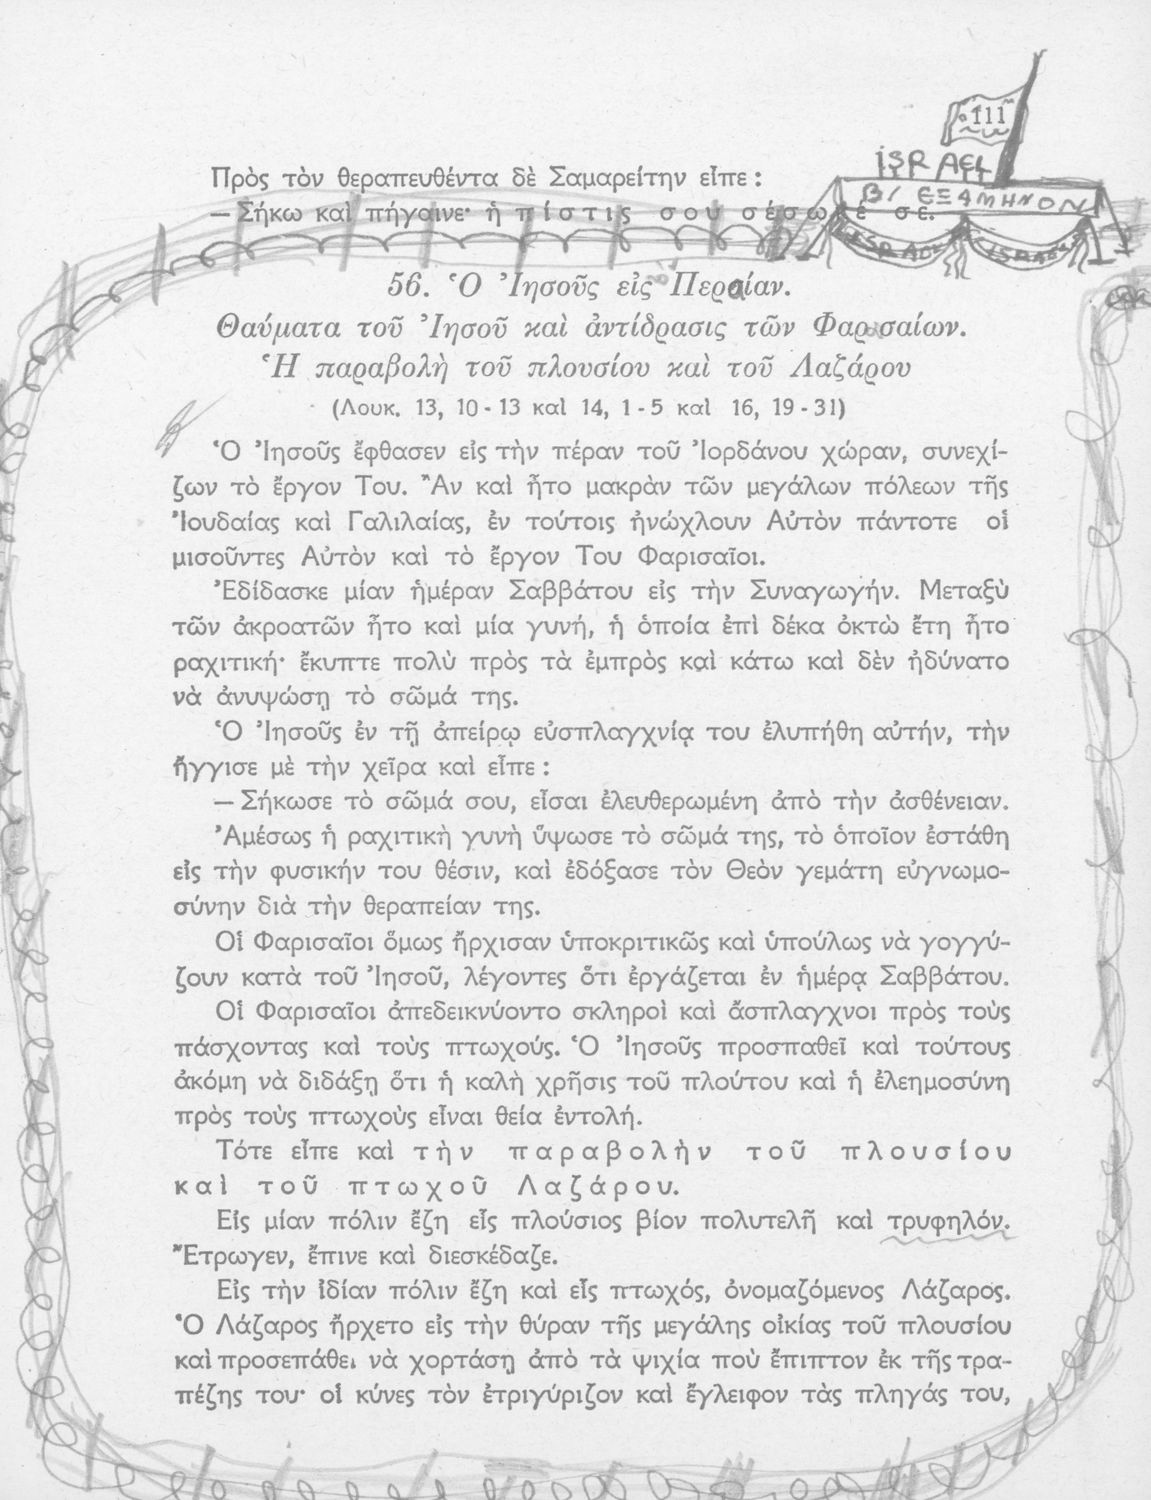 ISRAEL
Β/ ΕΞΑΜΗΝΟΝ
Πρὸς τὸν θεραπευθέντα δὲ Σαμαρείτην εἶπε :
— Σήκω καὶ πήγαινε· ἡ πίστις σου σέσωκέ σε.
ISRAEL ISRAEL
56. Ὁ Ἰησοῦς εἰς Περαίαν.
Θαύματα τοῦ Ἰησοῦ καὶ ἀντίδρασις τῶν Φαρισαίων.
Ἡ παραβολὴ τοῦ πλουσίου καὶ τοῦ Λαζάρου
(Λουκ. 13, 10 - 13 καὶ 14, 1 - 5 καὶ 16, 19 - 31)
Ὁ Ἰησοῦς ἔφθασεν εἰς τὴν πέραν τοῦ Ἰορδάνου χώραν, συνεχί-
ζων τὸ ἔργον Του. Ἂν καὶ ἦτο μακρὰν τῶν μεγάλων πόλεων τῆς
Ἰουδαίας καὶ Γαλιλαίας, ἐν τούτοις ἠνώχλουν Αὐτὸν πάντοτε οἱ
μισοῦντες Αὐτὸν καὶ τὸ ἔργον Του Φαρισαῖοι.
Ἐδίδασκε μίαν ἡμέραν Σαββάτου εἰς τὴν Συναγωγήν. Μεταξὺ
τῶν ἀκροατῶν ἦτο καὶ μία γυνή, ἡ ὁποία ἐπὶ δέκα ὀκτὼ ἔτη ἦτο
ραχιτική· ἔκυπτε πολὺ πρὸς τὰ ἐμπρὸς καὶ κάτω καὶ δὲν ἠδύνατο
νὰ ἀνυψώσῃ τὸ σῶμά της.
Ὁ Ἰησοῦς ἐν τῇ ἀπείρῳ εὐσπλαγχνίᾳ του ἐλυπήθη αὐτήν, τὴν
ἤγγισε μὲ τὴν χεῖρα καὶ εἶπε :
— Σήκωσε τὸ σῶμά σου, εἶσαι ἐλευθερωμένη ἀπὸ τὴν ἀσθένειαν.
Ἀμέσως ἡ ραχιτικὴ γυνὴ ὕψωσε τὸ σῶμά της, τὸ ὁποῖον ἐστάθη
εἰς τὴν φυσικήν του θέσιν, καὶ ἐδόξασε τὸν Θεὸν γεμάτη εὐγνωμο-
σύνην διὰ τὴν θεραπείαν της.
Οἱ Φαρισαῖοι ὅμως ἤρχισαν ὑποκριτικῶς καὶ ὑπούλως νὰ γογγύ-
ζουν κατὰ τοῦ Ἰησοῦ, λέγοντες ὅτι ἐργάζεται ἐν ἡμέρᾳ Σαββάτου.
Οἱ Φαρισαῖοι ἀπεδεικνύοντο σκληροὶ καὶ ἄσπλαγχνοι πρὸς τοὺς
πάσχοντας καὶ τοὺς πτωχούς. Ὁ Ἰησοῦς προσπαθεῖ καὶ τούτους
ἀκόμη νὰ διδάξῃ ὅτι ἡ καλὴ χρῆσις τοῦ πλούτου καὶ ἡ ἐλεημοσύνη
πρὸς τοὺς πτωχοὺς εἶναι θεία ἐντολή.
Τότε εἶπε καὶ τὴν παραβολὴν τοῦ πλουσίου
καὶ τοῦ πτωχοῦ Λαζάρου.
Εἰς μίαν πόλιν ἔζη εἷς πλούσιος βίον πολυτελῆ καὶ τρυφηλόν.
Ἔτρωγεν, ἔπινε καὶ διεσκέδαζε.
Εἰς τὴν ἰδίαν πόλιν ἔζη καὶ εἷς πτωχός, ὀνομαζόμενος Λάζαρος.
Ὁ Λάζαρος ἤρχετο εἰς τὴν θύραν τῆς μεγάλης οἰκίας τοῦ πλουσίου
καὶ προσεπάθει νὰ χορτάσῃ ἀπὸ τὰ ψιχία ποὺ ἔπιπτον ἐκ τῆς τρα-
πέζης του· οἱ κύνες τὸν ἐτριγύριζον καὶ ἔγλειφον τὰς πληγάς του,